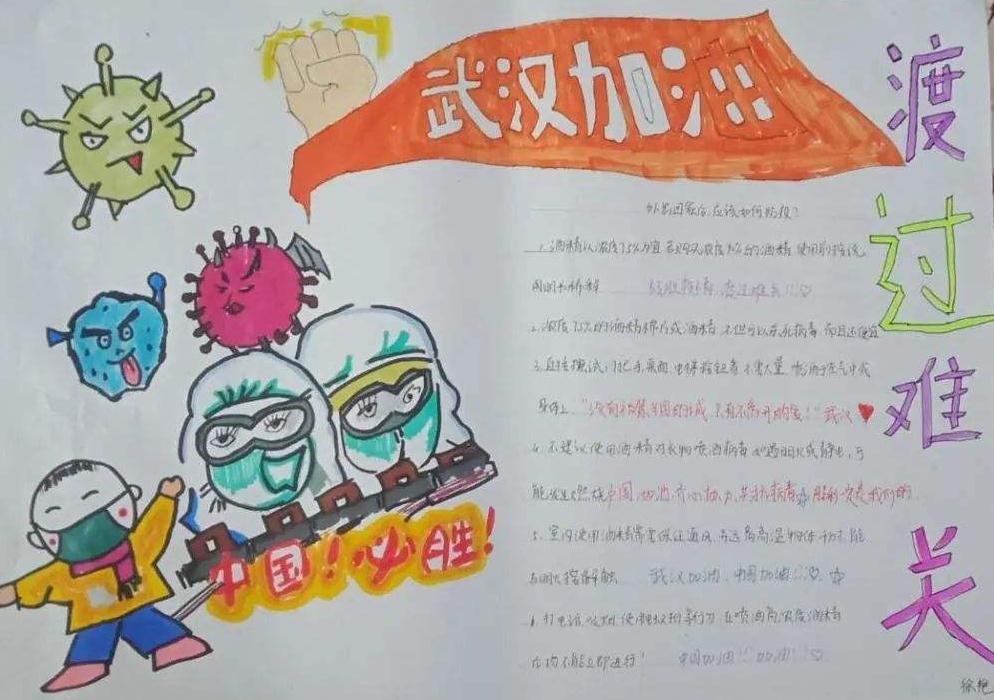 武汉加油
渡过难关
外出回家后应该如何防疫?
1.酒精以浓度75%为宜 使用前擦洗
战胜病毒, 度过难关!!♡
2.浓度75%的酒精棉片或酒精 不但可以杀死病毒 而且还便宜
3.直接擦拭门把手桌面、电梯按钮 不需大量喷洒于空气中或
身体上 "没有不 的城 只有不离开的 !" 武汉♥
4.不建议使用酒精对衣物喷洒 如遇明火或静电,可
能发生燃烧 中国,加油 齐心协力 共抗病毒 胜利一定是我们的
5.室内使用酒精需要保证通风 与远离高温物体 不能
与明火接触 武汉加油,中国加油!!♡
6.打电话 吸烟 使用 等行为 在喷洒高浓度酒精
后均不能立即进行! 中国加油!! 加油!!♡
中国!必胜!
徐艳